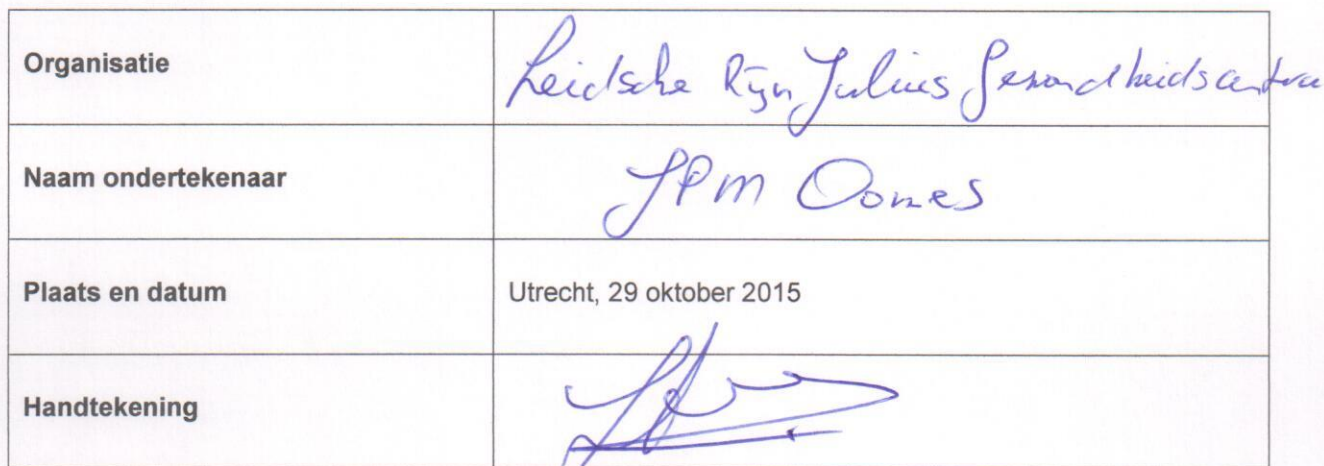 Organisatie Leidsche Rijn Julius Gezondheidscentra
Naam ondertekenaar JPM Oomes
Plaats en datum Utrecht, 29 oktober 2015
Handtekening